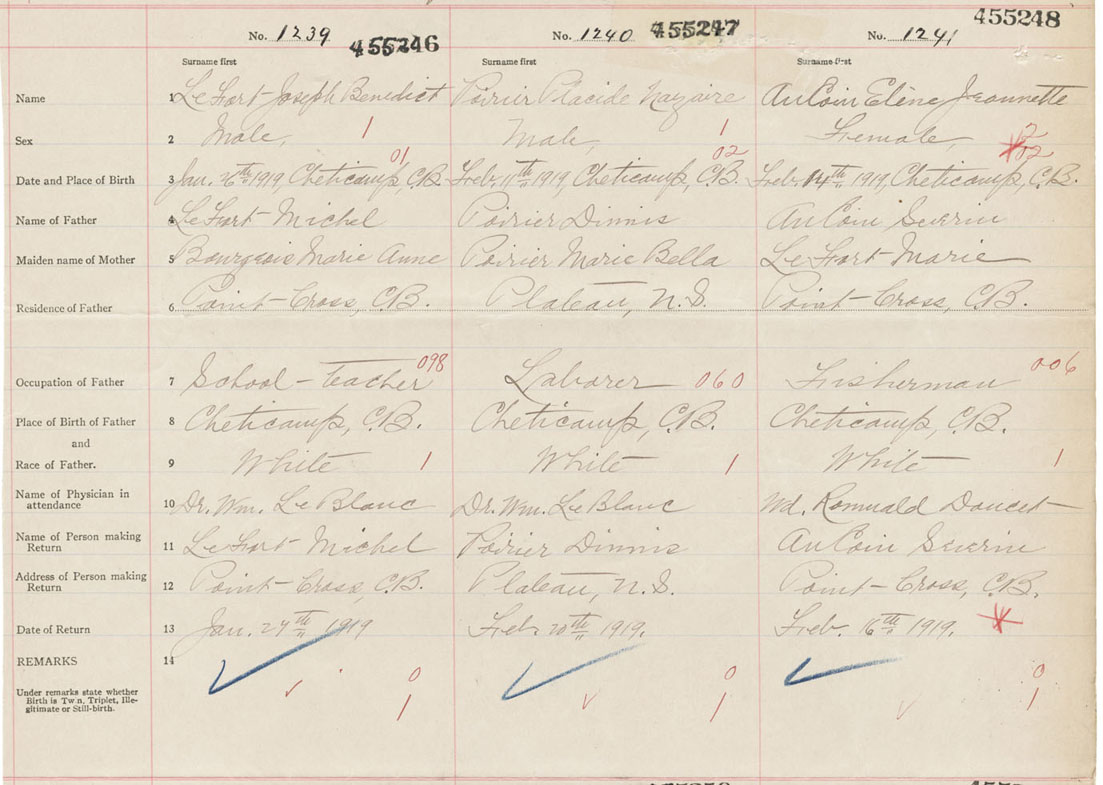 No. 1239 455246 No. 1240 455247 No. 1241 455248
Surname first Surname first Surname first
Name 1 LeFort Joseph Benedict Poirier Placide Nazaire AuCoin Elène Jeannette
Sex 2 Male, 1 Male, 1 Female, 2
01 02 02
Date and Place of Birth 3 Jan. 26th 1919, Cheticamp, C.B. Feb. 11th 1919, Cheticamp, C.B. Feb. 14th 1919, Cheticamp, C.B.
Name of Father 4 LeFort Michel Poirier Dinnis AuCoin Severin
Maiden name of Mother 5 Bourgeois Marie Anne Poirier Marie Bella LeFort Marie
Residence of Father 6 Point-Cross, C.B. Plateau, N.S. Point-Cross, C.B.
Occupation of Father 7 School-teacher 098 Laborer 060 Fisherman 006
Place of Birth of Father 8 Cheticamp, C.B. Cheticamp, C.B. Cheticamp, C.B.
and
Race of Father. 9 White 1 White 1 White 1
Name of Physician in
attendance 10 Dr. Wm. LeBlanc Dr. Wm. LeBlanc Wd. Romuald Doucet
Name of Person making
Return 11 LeFort Michel Poirier Dinnis AuCoin Severin
Address of Person making
Return 12 Point-Cross, C.B. Plateau, N.S. Point-Cross, C.B.
Date of Return 13 Jan. 27th 1919 Feb. 20th 1919. Feb. 16th 1919.
REMARKS 14
0 0 0
Under remarks state whether
Birth is Twin, Triplet, Ille-
gitimate or Still-birth. 1 1 1